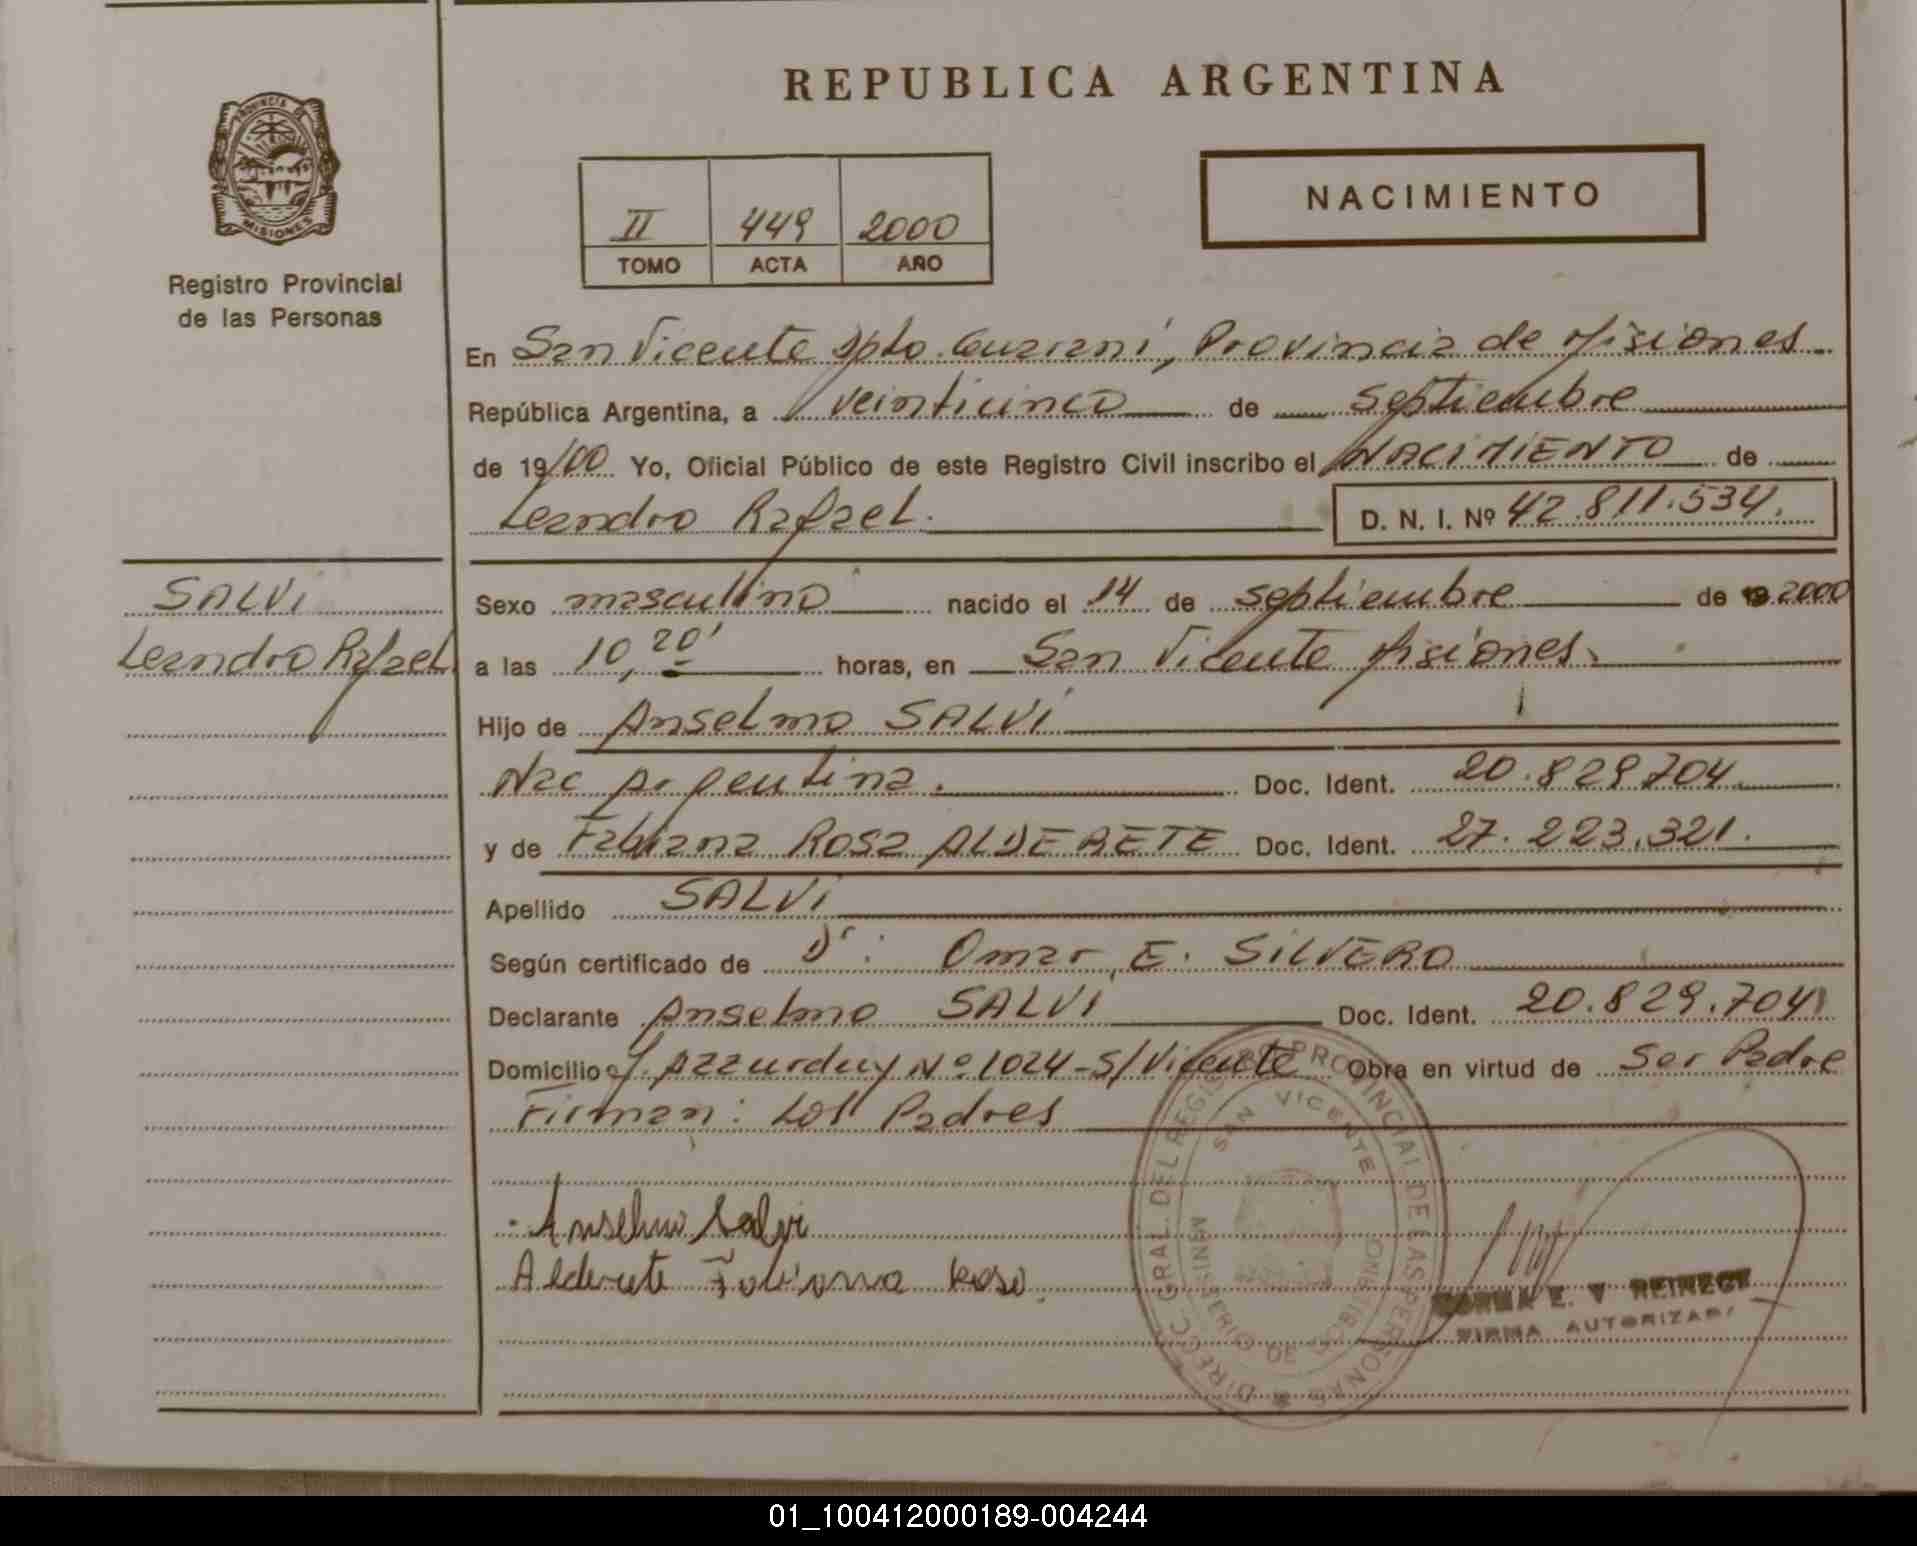 REPUBLICA ARGENTINA
PROVINCIA DE MISIONES
Registro Provincial
de las Personas
II 449 2000
TOMO ACTA AÑO
NACIMIENTO
En San Vicente Dpto. Guaraní, Provincia de Misiones
República Argentina, a veinticinco de Septiembre
de 19/00 Yo, Oficial Público de este Registro Civil inscribo el NACIMIENTO de
Leandro Rafael. D. N. I. Nº 42.811.534.
SALVI
Leandro Rafael
Sexo masculino nacido el 14 de septiembre de 19 2000
a las 10,20' horas, en San Vicente Misiones.
Hijo de Anselmo SALVI
Nac Argentina. Doc. Ident. 20.829.704
y de Fabiana Rosa ALDERETE Doc. Ident. 27.223.321.
Apellido SALVI
Según certificado de Dr: Omar E. SILVERO
Declarante Anselmo SALVI Doc. Ident. 20.829.704
Domicilio J. Azzurduy Nº 1024-S/Vicente Obra en virtud de Ser Padre
Firman: Los Padres
Anselmo Salvi
Alderete Fabiana Rosa
DIRECC. GRAL. DEL REGISTRO PROVINCIAL DE LAS PERSONAS
SAN VICENTE
E. V. REINECK
FIRMA AUTORIZADA
01_100412000189-004244